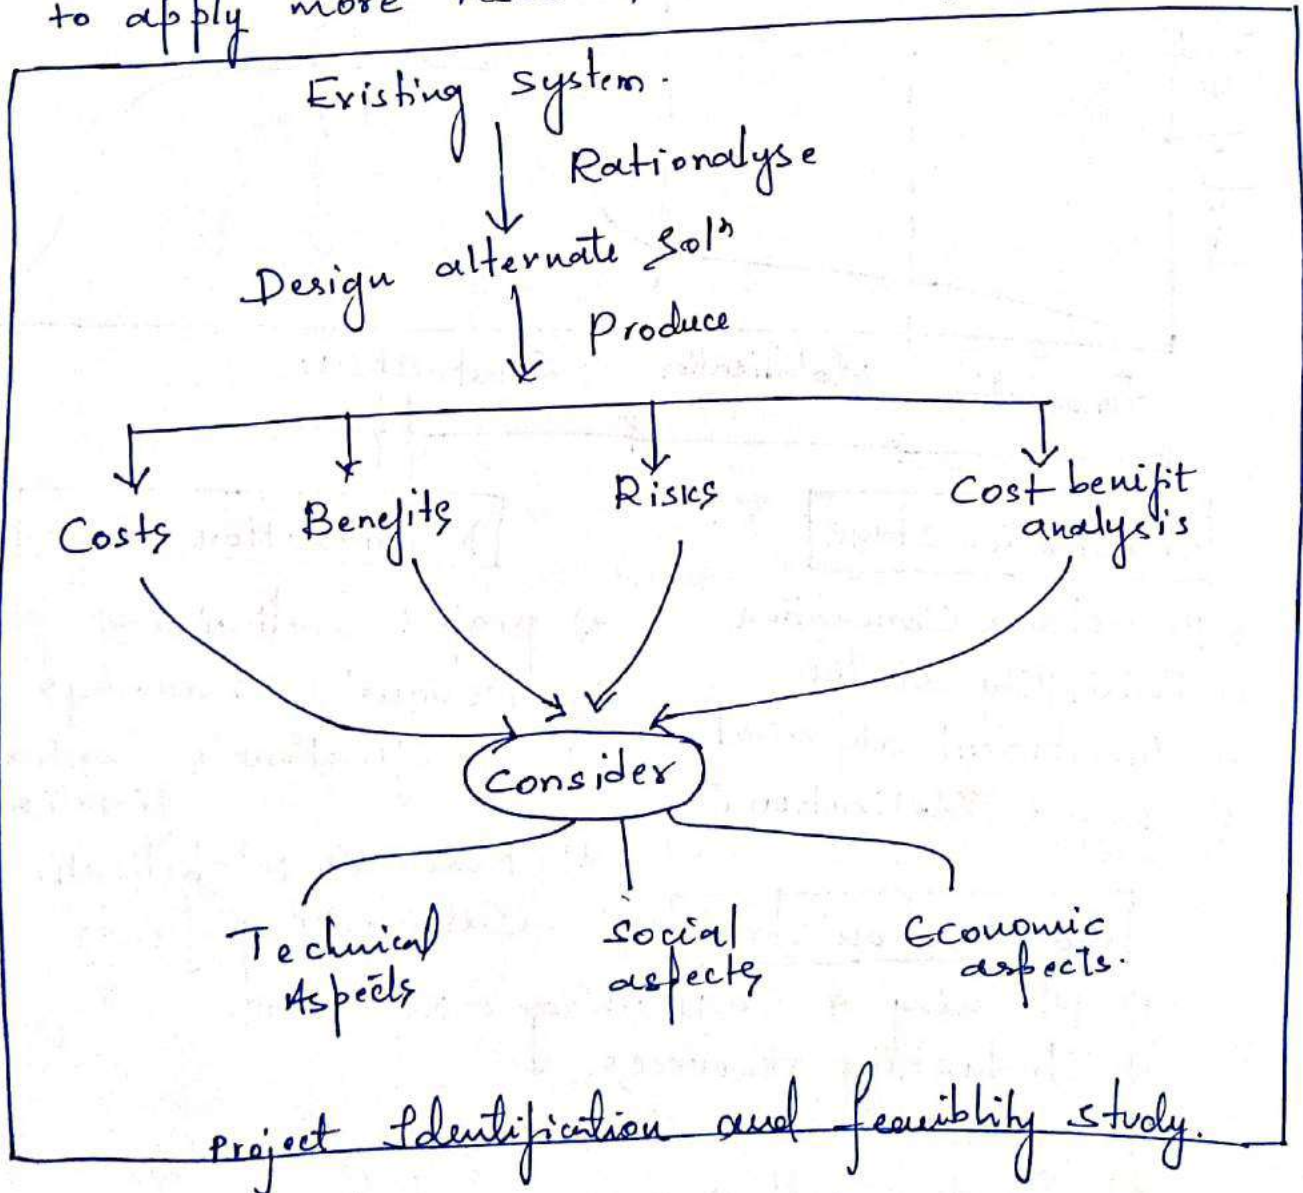 to apply more
Existing system.
Rationalyse
Design alternate Solⁿ
Produce
Costs Benefits Risks Cost benifit
analysis
Consider
Technical Social Economic
Aspects aspects aspects.
Project Identification and feasiblity study.